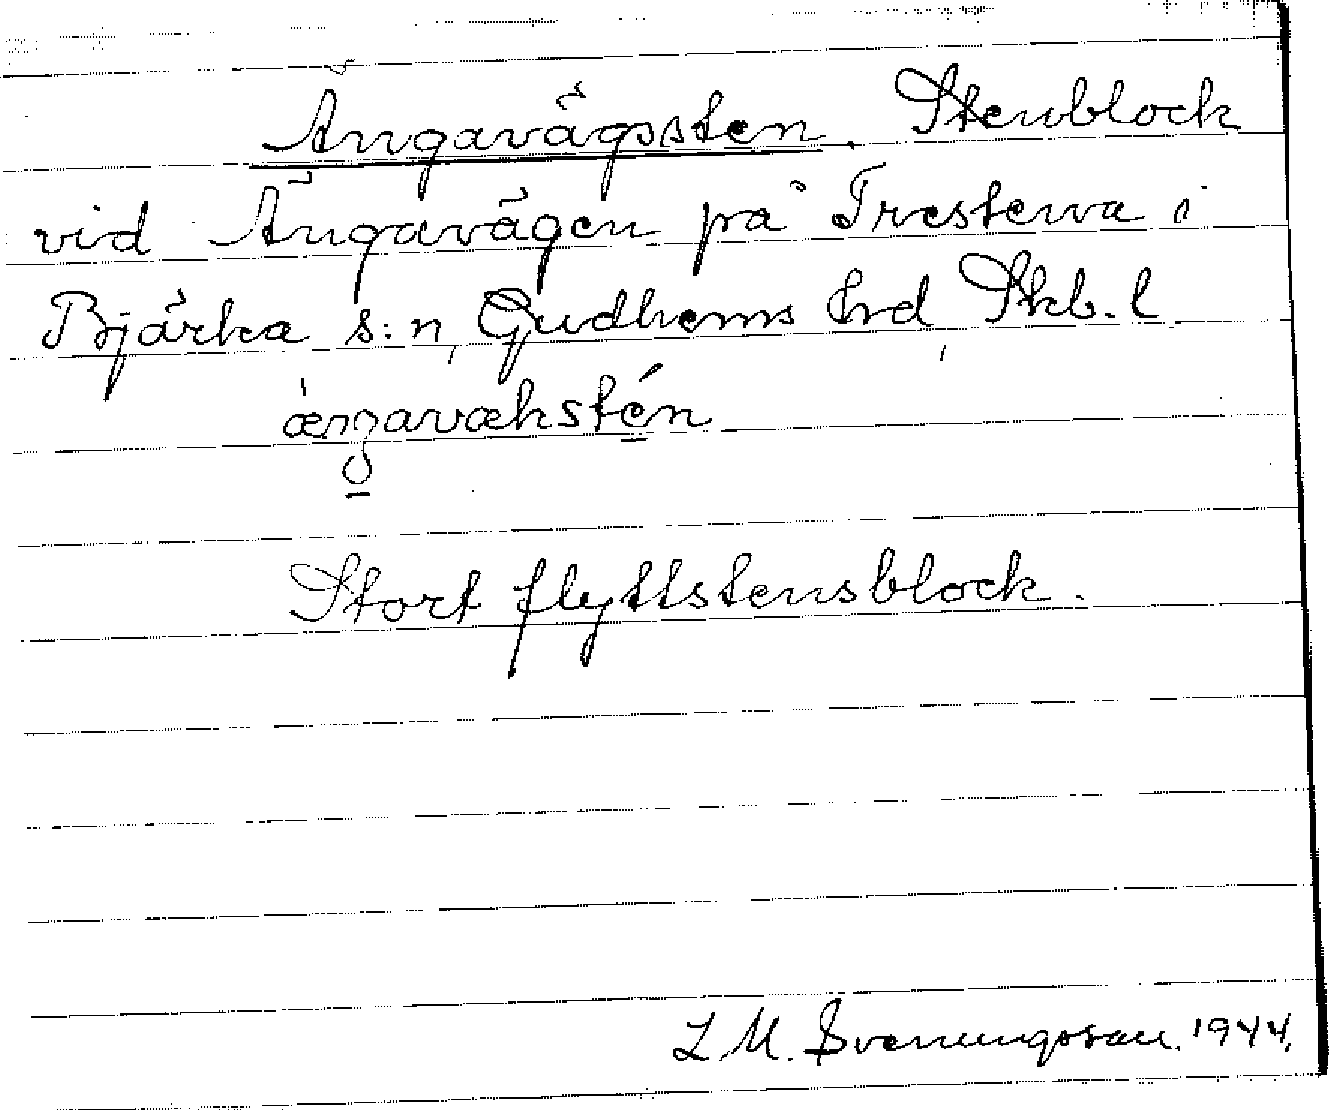 Ängavägssten. Stenblock
vid Ängavägen på Trestena i
Bjärka s:n, Gudhems hd, Skb. l
ængavækstén
Stort flyttstensblock.
L. M. Svenungsson. 1944.